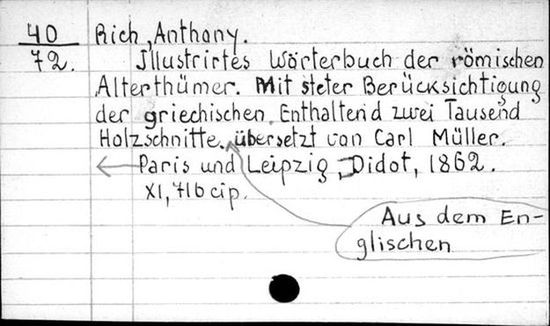 40
72.
Rich, Anthony.
Illustrirtes Wörterbuch der römischen
Alterthümer. Mit steter Berücksichtigung
der griechischen. Enthaltend zwei Tausend
Holzschnitte. übersetzt von Carl Müller.
Paris und Leipzig, Didot, 1862.
XI, 716 cip.
Aus dem En-
glischen